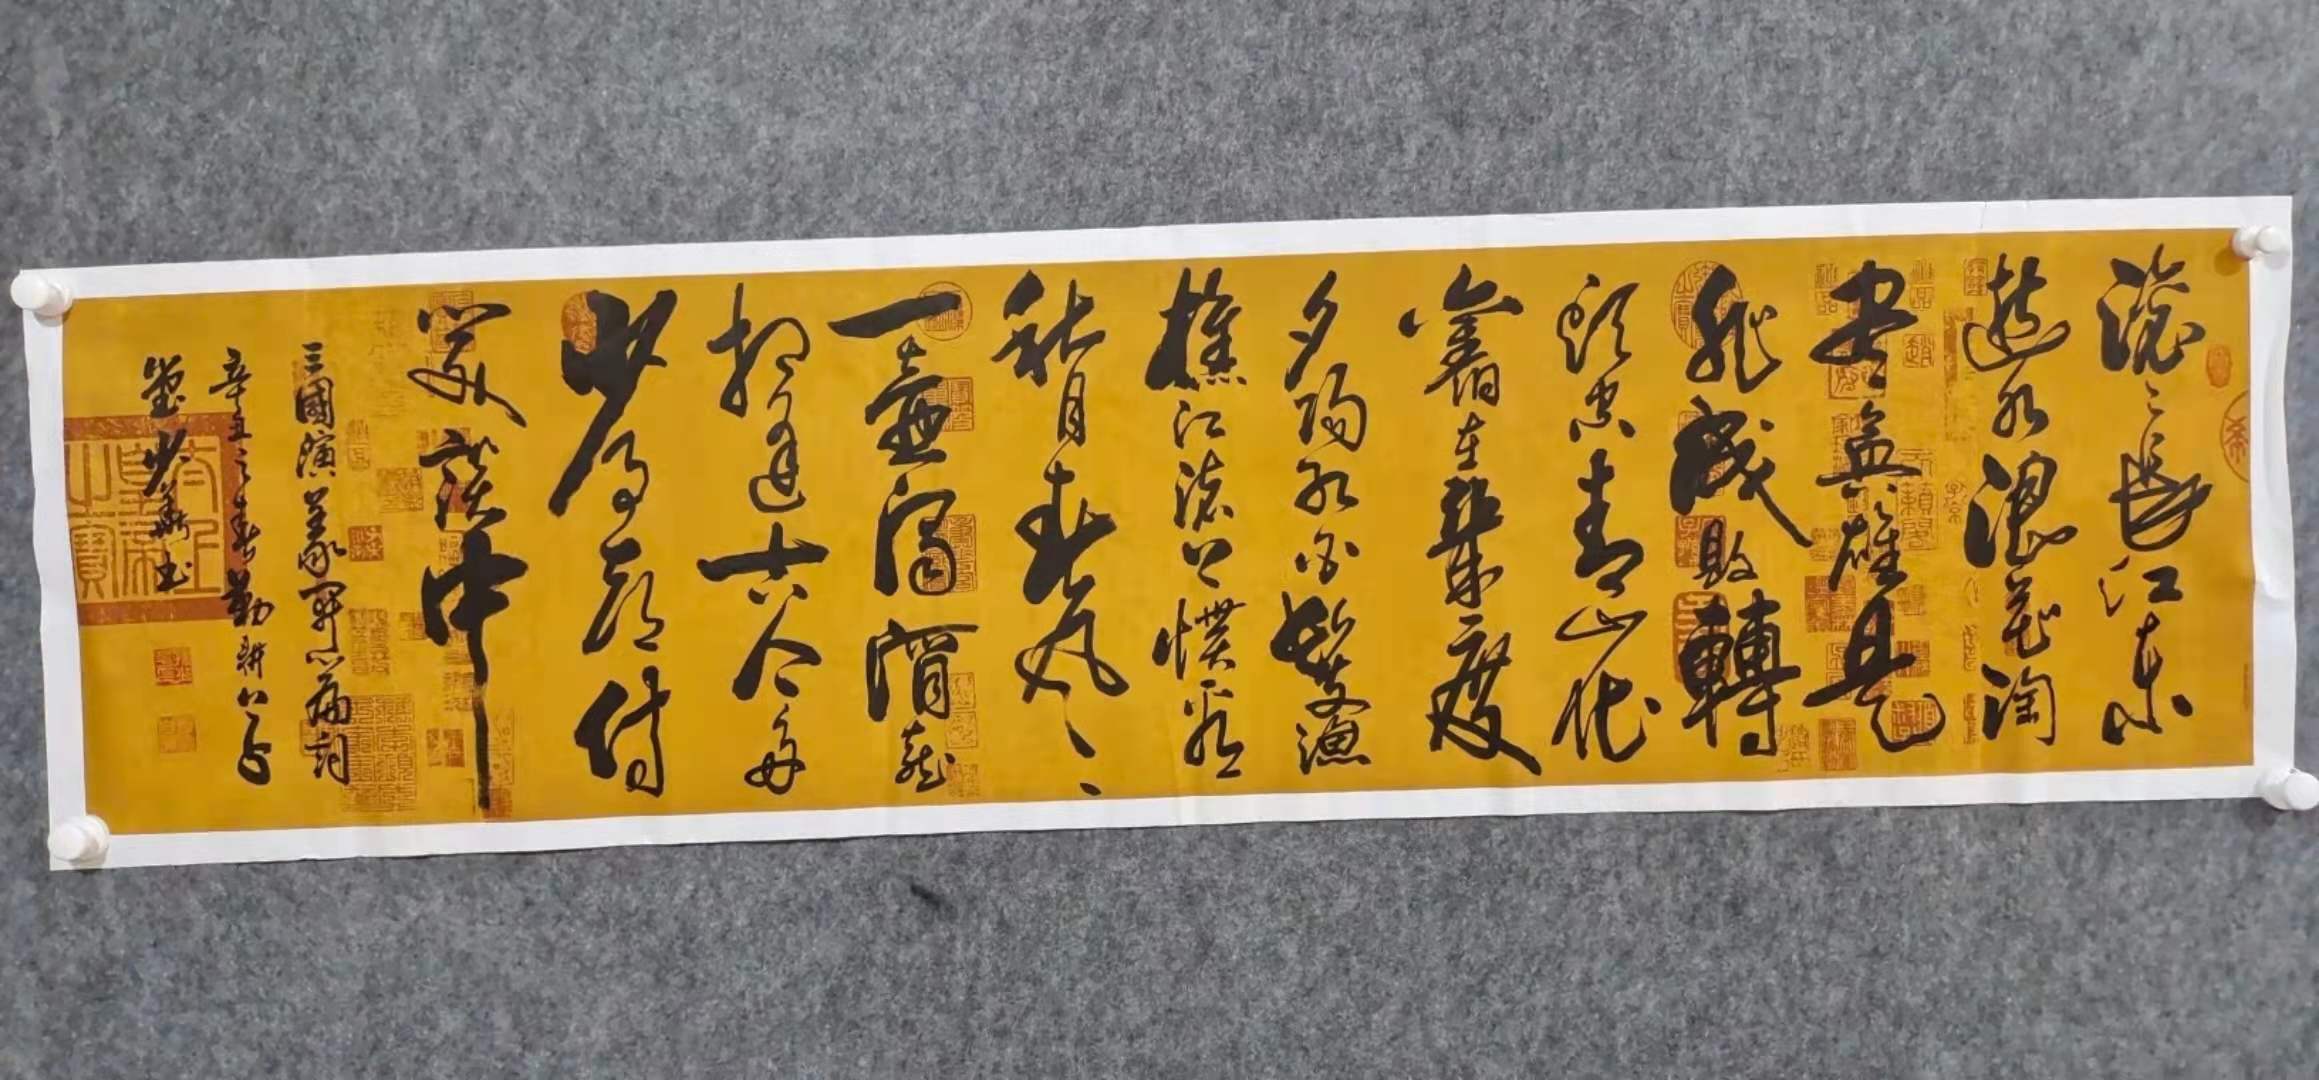 滚々長江東
逝水浪花淘
尽英雄是
非成敗轉
頭空青山依
舊在幾度
夕陽紅白髮漁
樵江渚上慣看
秋月春風
一壺濁酒喜
相逢古今多
少事都付
笑談中
三國演義開篇詞
辛丑之春勤耕